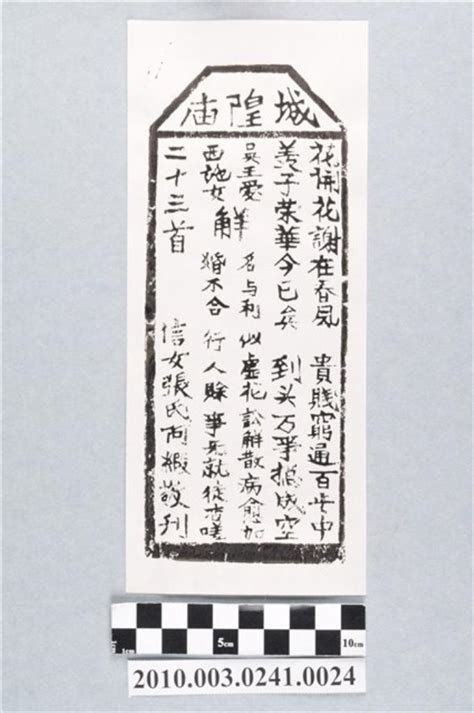 城隍庙
花開花謝在春風 貴賤窮通百岁中
羨子荣華今已矣 到头万事捴成空
解
吴王愛 名与利 似虛花 訟解散 病愈加
西地女 婚不合 行人賖 事无就 從古嗟
二十三首 信女張氏阿緞敬刊
1cm 5cm 10cm
2010.003.0241.0024